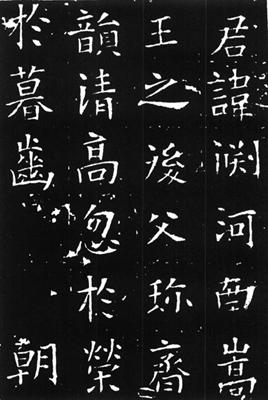 君諱河南嵩
王之後父珎齊
韻清高忽於榮
於暮齒朝